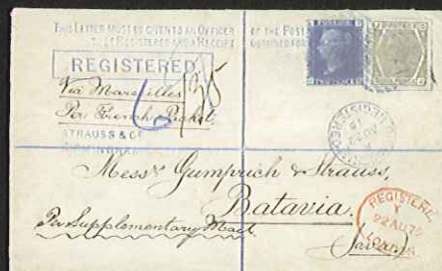 THIS LETTER MUST BE GIVEN TO AN OFFICER OF THE POST
TO BE REGISTERED AND A RECEIPT OBTAINED FOR
REGISTERED
Via Marseilles
Per French Packet
STRAUSS & Co
BIRMINGHAM
Messrs Gumprich & Strauss,
Batavia.
(Java)
Per Supplementary Mail
REGISTERED
22 AU 75
LONDON